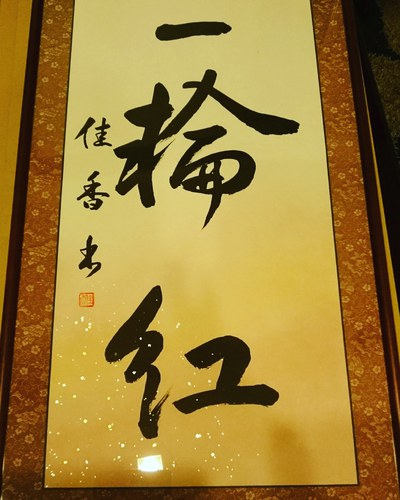 一輪紅
佳香書